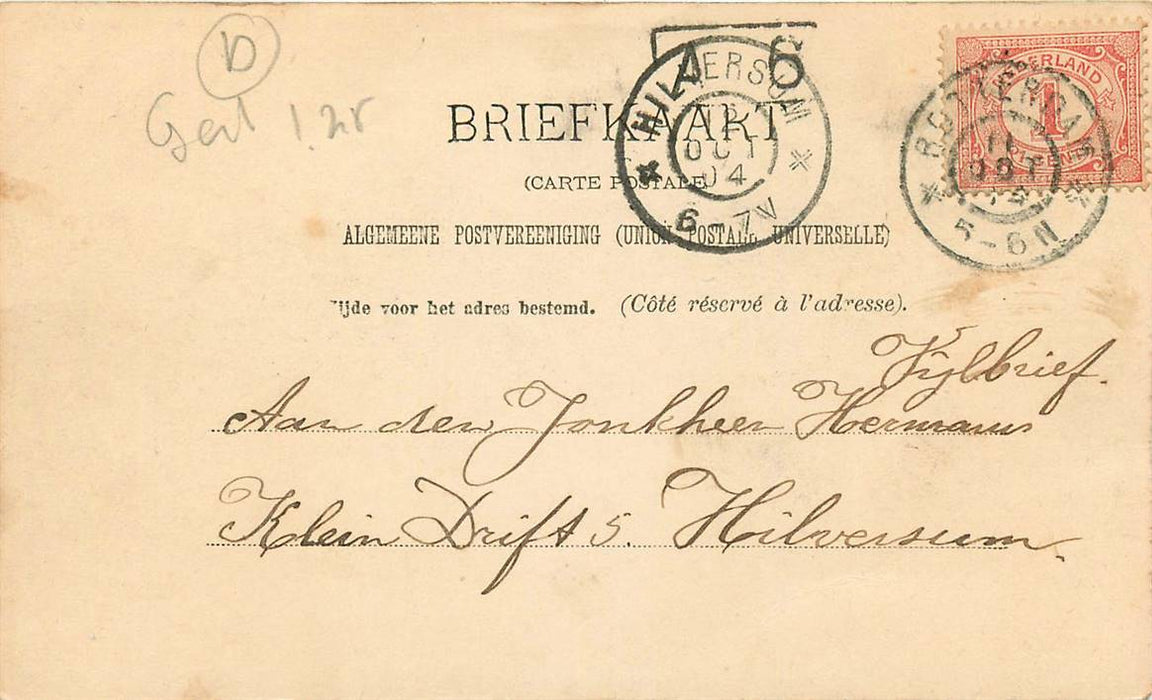 D
Gert 1.25
A 6
BRIEFKAART
(CARTE POSTALE)
ALGEMEENE POSTVEREENIGING (UNION POSTALE UNIVERSELLE)
ijde voor het adres bestemd. (Côté réservé à l'adresse).
HILVERSUM
12
OCT
04
6-7V
NEDERLAND
1
CENT
ROTTERDAM
11
OCT
04
5-6N
Vijlbrief.
Aan den Jonkheer Hermanus
Klein Drift 5. Hilversum.